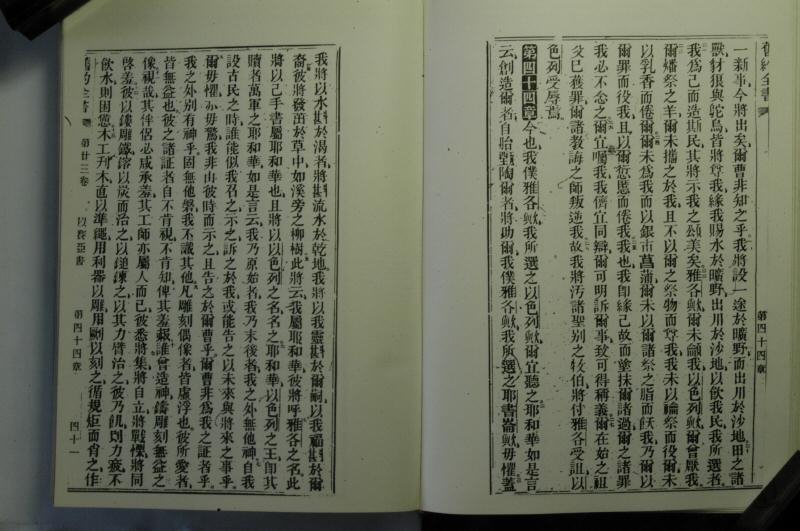 舊約全書
第四十四章
一新事今將出矣爾曹非知之乎我將設一途於曠野而出川於沙地田之諸
獸豺狼與鴕鳥皆將尊我緣我賜水於曠野出川於沙地以飲我民我所選者
我爲己而造斯民其將示我之頌美矣雅各歟爾未籲我以色列歟爾曾厭我
爾燔祭之羊爾未攜之於我且不以爾之祭物而尊我我未以禴祭而役爾未
以乳香而倦爾爾未爲我而以銀市菖蒲爾未以爾諸祭之脂而飫我乃爾以
爾罪而役我且以爾愆慝而倦我我也我即緣己故而塗抹爾諸過爾之諸罪
我必不念之爾宜囑我我儕宜同辯爾可明訴爾事致可得稱義爾在始之祖
父已獲罪爾諸敎誨之師叛逆我故我將汚諸聖别之牧伯將付雅各受詛以
色列受辱焉
第四十四章今也我僕雅各歟我所選之以色列歟爾宜聽之耶和華如是言
云創造爾者自胎甄陶爾者將助爾我僕雅各歟我所選之耶書崙歟毋懼蓋
我將以水斟於渴者將斟流水於乾地我將以我靈斟於爾嗣以我福斟於爾
裔彼將發茁於草中如溪旁之柳樹此將云我屬耶和華彼將呼雅各之名此
將以己手書屬耶和華也且將以以色列之名名之耶和華以色列之王即其
贖者萬軍之耶和華如是言云我乃原始者我乃末後者我之外無他神自我
設古民之時誰能似我召之示之訴之於我或能吿之以未來與將來之事乎
爾毋懼亦毋驚我非由彼時而示之且吿之於爾曹乎爾曹非爲我之証者乎
我之外别有神乎固無他磐我不識其他凡雕刻偶像者皆虛浮也彼所愛者
皆無益也彼之諸証者自不肯視不肯知俾其羞赧誰曾造神鑄雕刻無益之
像視哉其伴侶必咸承羞其工師亦屬人而已彼悉將集將自立將戰慄將同
啓羞彼以鐵雕鐵鎔以炭而治之以鎚諫之以其力臂治之彼乃飢則力衰不
飲水則困憊木工列木直以準繩用利器以雕用劚以刻之循規矩而肖之作
舊約全書 第廿三卷 以賽亞書 第四十四章 四十一